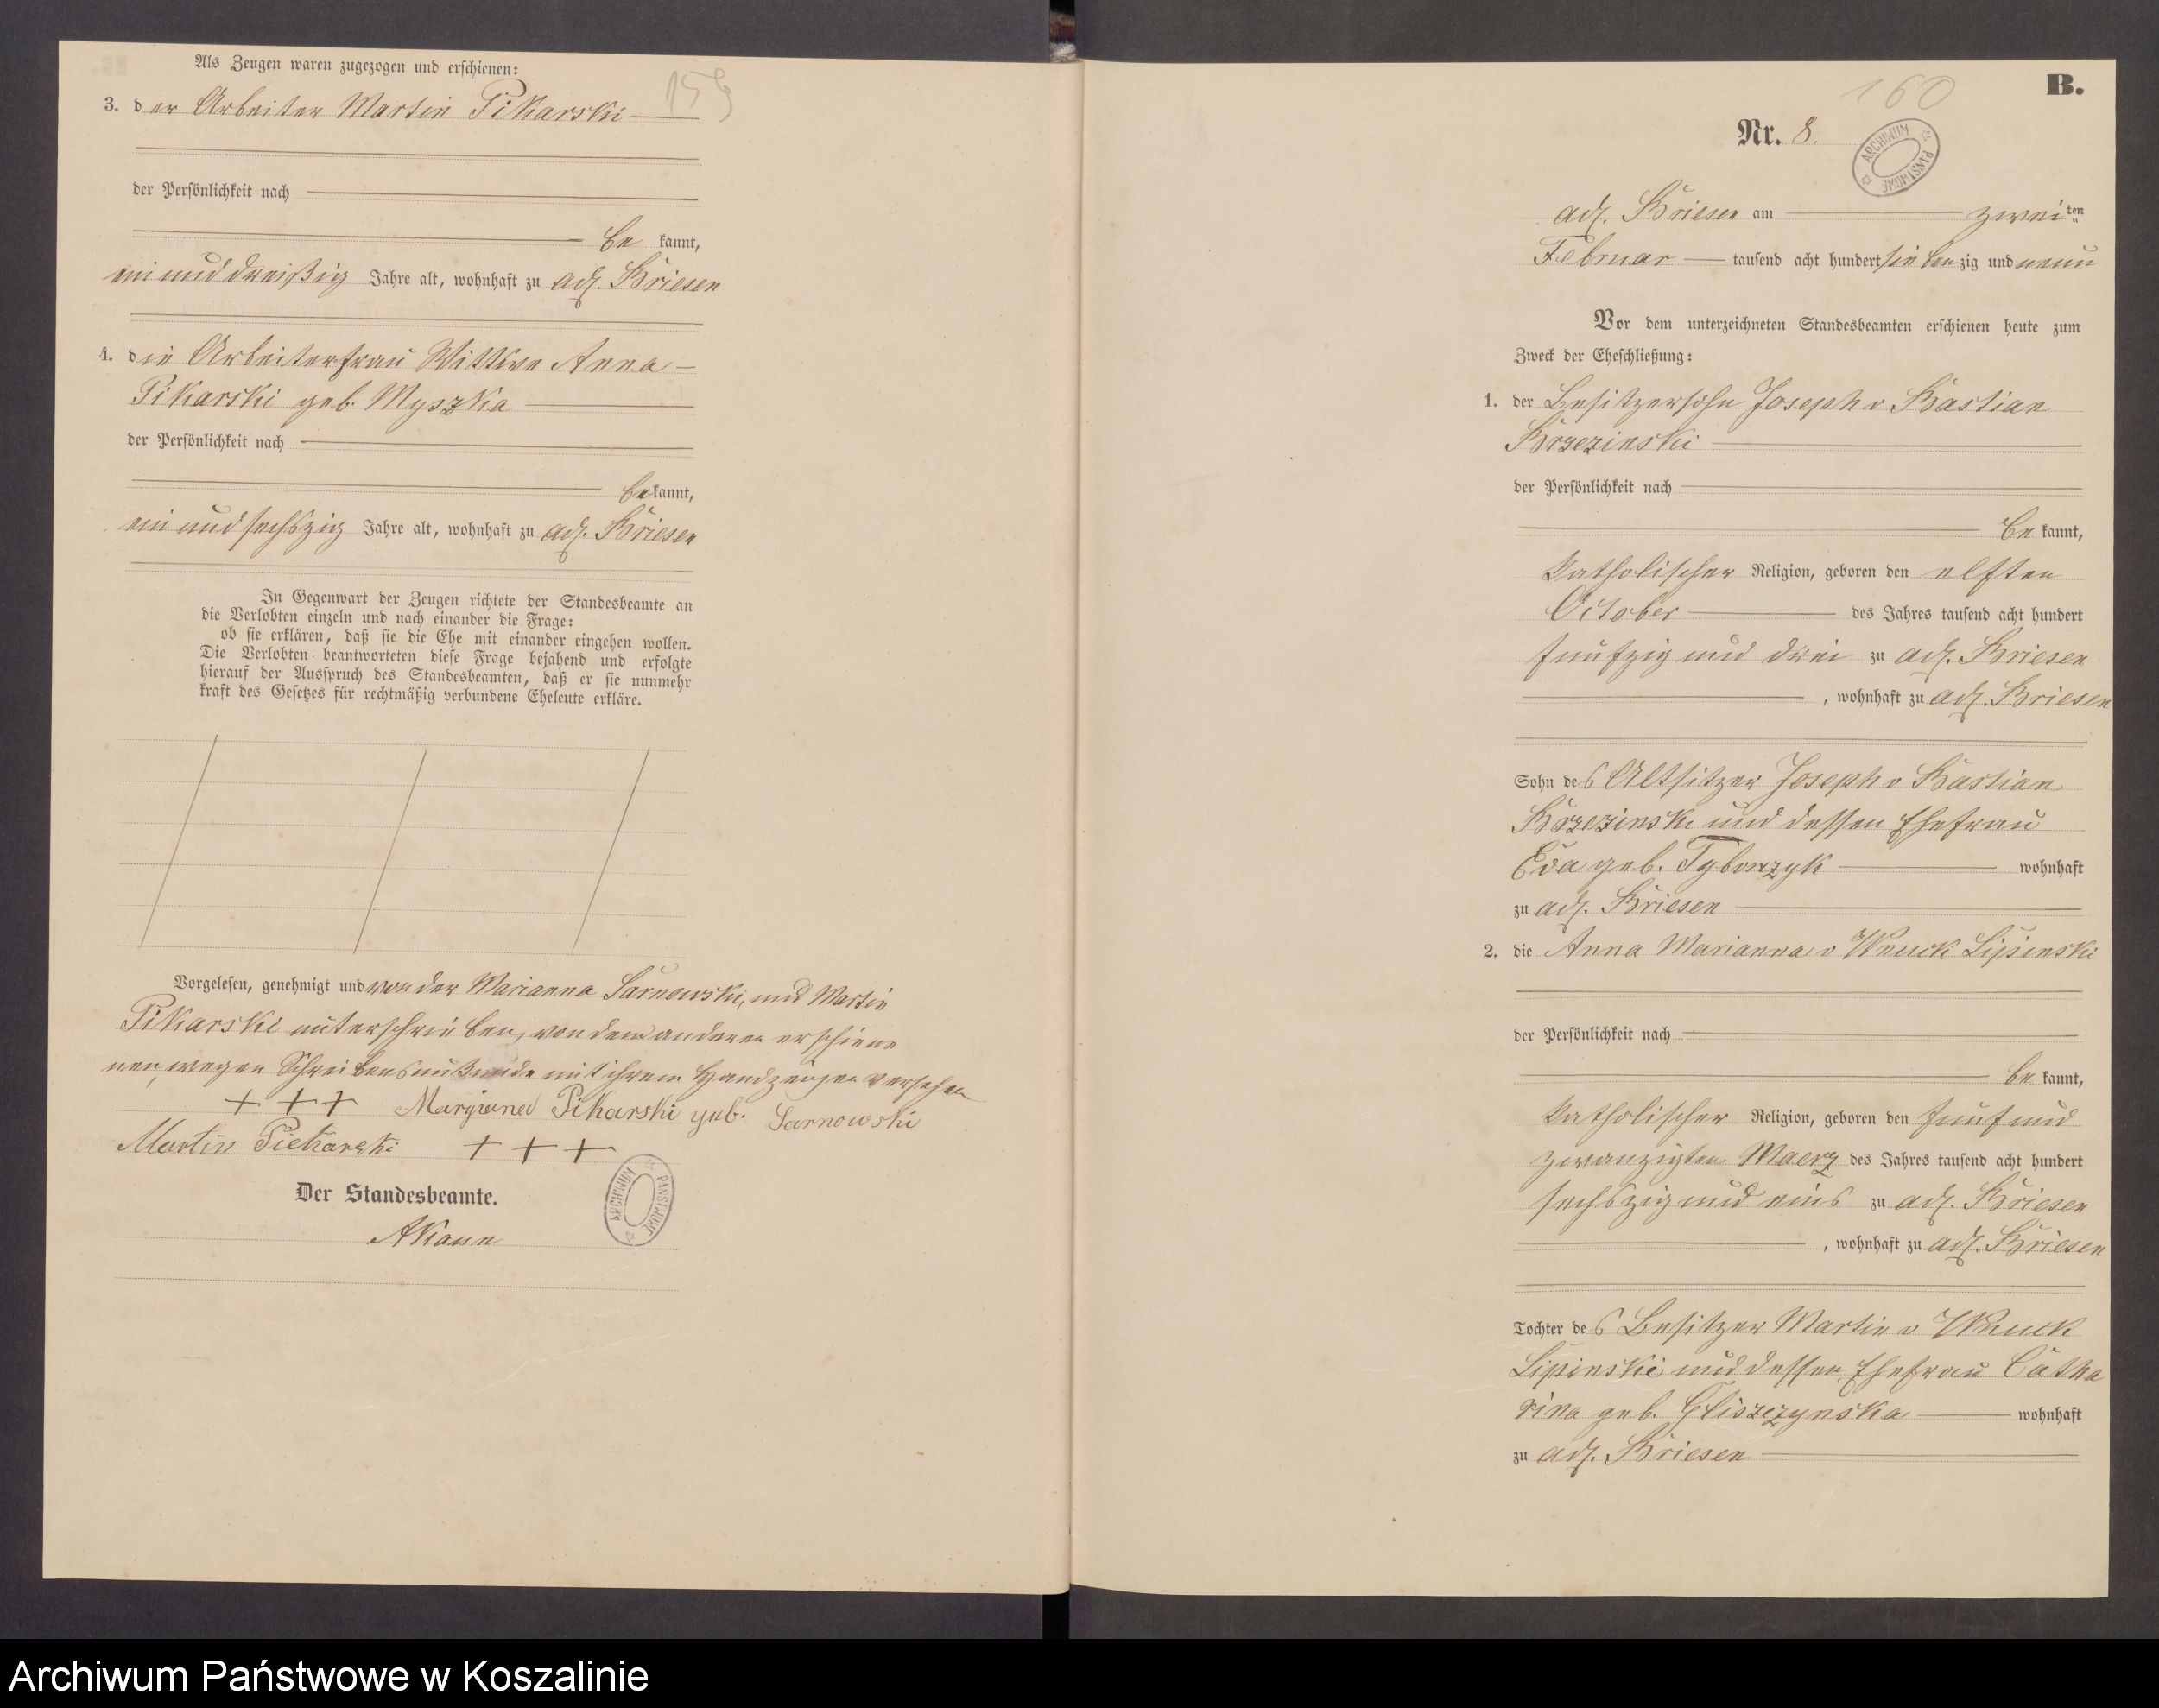 Als Zeugen waren zugezogen und erschienen:
159
3. der Arbeiter Martin Pikarski
der Persönlichkeit nach
be kannt,
ein und dreißig Jahre alt, wohnhaft zu adl. Briesen
4. die Arbeiterfrau Wittwe Anna
Pikarski geb. Myszka
der Persönlichkeit nach
bekannt,
ein und sechszig Jahre alt, wohnhaft zu adl. Briesen
In Gegenwart der Zeugen richtete der Standesbeamte an
die Verlobten einzeln und nach einander die Frage:
ob sie erklären, daß sie die Ehe mit einander eingehen wollen.
Die Verlobten beantworteten diese Frage bejahend und erfolgte
hierauf der Ausspruch des Standesbeamten, daß er sie nunmehr
kraft des Gesetzes für rechtmäßig verbundene Eheleute erkläre.
Vorgelesen, genehmigt und von der Marianna Sarnowski, und Martin
Pikarski unterschrieben, von den anderen erschiene
nen, wegen Schreibens mit ihrem Handzeichen versehen
+ + + Maryanna Pikarski geb. Sarnowski
Martin Piekarski + + +
Der Standesbeamte.
AKann
ARCHIWUM PAŃSTWOWE
B.
160
Nr. 8.
ARCHIWUM PAŃSTWOWE
adl. Briesen am zweiten
Februar tausend acht hundert siebenzig und neun
Vor dem unterzeichneten Standesbeamten erschienen heute zum
Zweck der Eheschließung:
1. der Besitzersohn Joseph v Bastian
Brzezinski
der Persönlichkeit nach
be kannt,
katholischer Religion, geboren den elften
October des Jahres tausend acht hundert
fünfzig und drei zu adl. Briesen
, wohnhaft zu adl. Briesen
Sohn des Altsitzer Joseph v Bastian
Brzezinski und dessen Ehefrau
Eva geb. Tyborczyk wohnhaft
zu adl. Briesen
2. die Anna Marianna v Wnuck Lipinski
der Persönlichkeit nach
be kannt,
katholischer Religion, geboren den fünf und
zwanzigten Maerz des Jahres tausend acht hundert
sechszig und eins zu adl. Briesen
, wohnhaft zu adl. Briesen
Tochter des Besitzer Martin v Wnuck
Lipinski und dessen Ehefrau Catha
rina geb. Gliszczynska wohnhaft
zu adl. Briesen
Archiwum Państwowe w Koszalinie